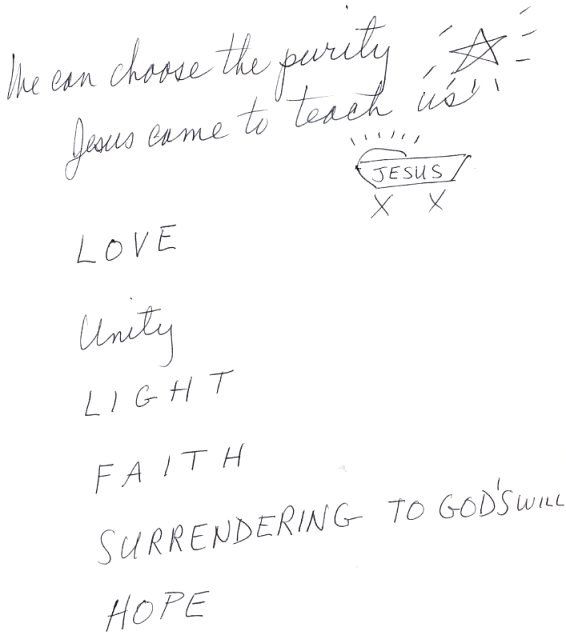 We can choose the purity
Jesus came to teach us
JESUS
LOVE
Unity
LIGHT
FAITH
SURRENDERING TO GOD'S WILL
HOPE